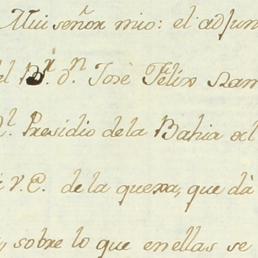 Mui señor mio: el adjun
el B.r d.n José Félix Ram
l. Presidio de la Bahia del
v.E. de la quexa, que dà
, sobre lo que en ellas se